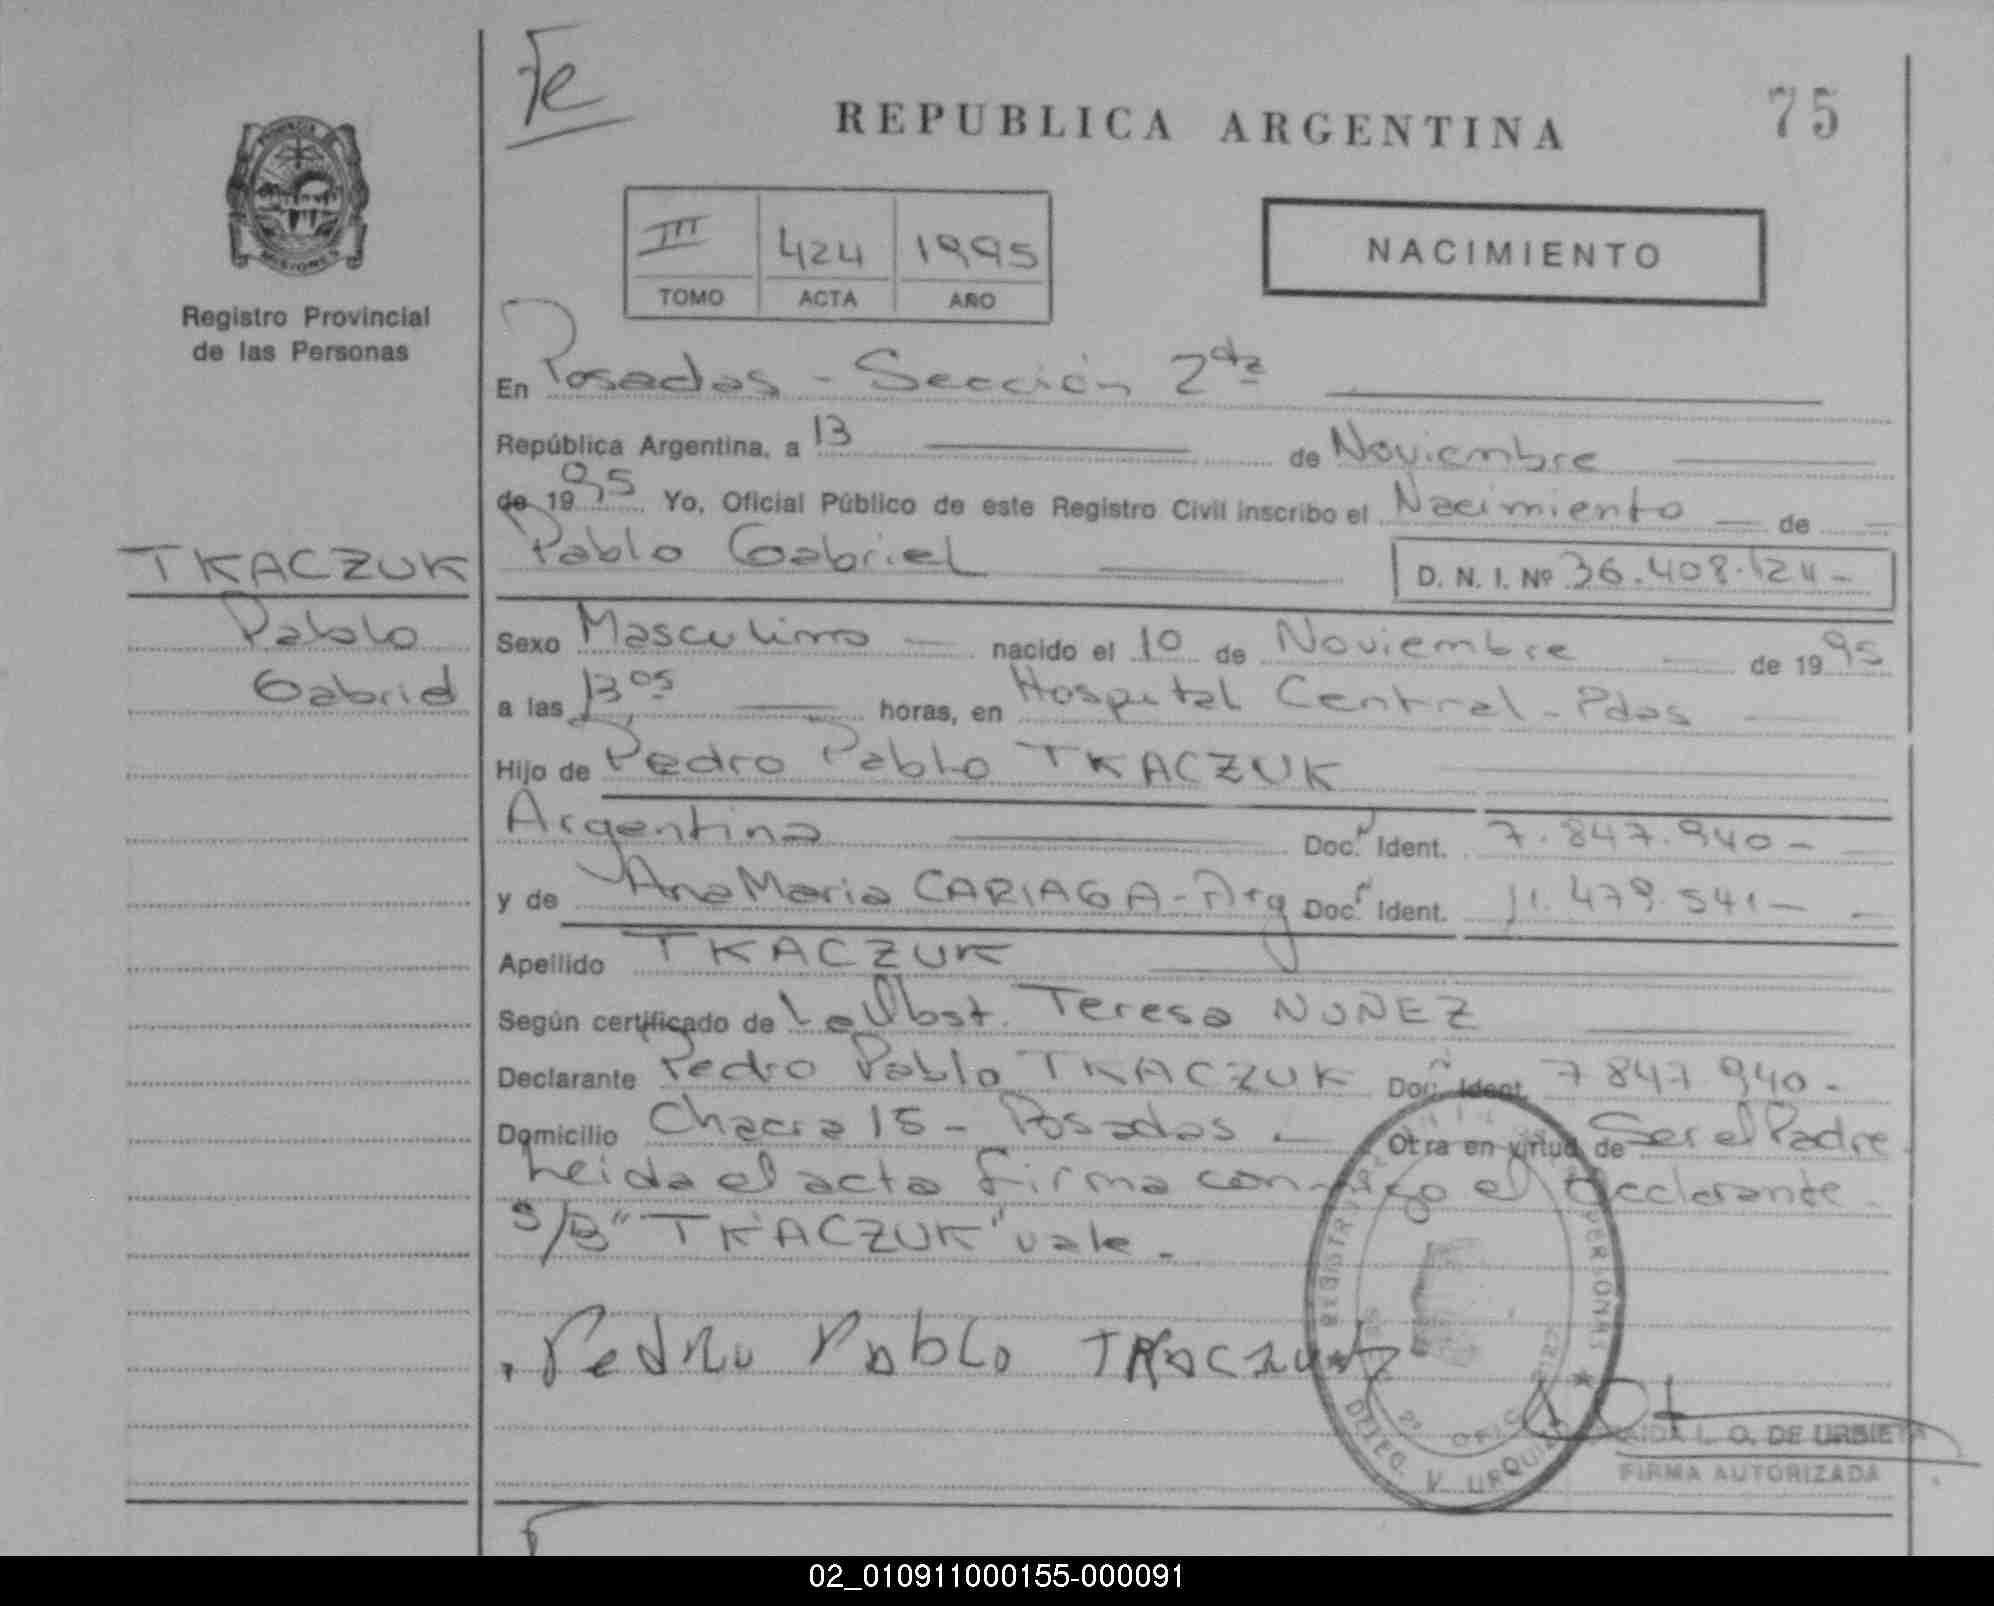 Fe
REPUBLICA ARGENTINA
75
MISIONES
Registro Provincial
de las Personas
III 424 1995
TOMO ACTA AÑO
NACIMIENTO
En Posadas - Sección 2da
República Argentina, a 13 de Noviembre
de 1995 Yo, Oficial Público de este Registro Civil inscribo el Nacimiento de
TKACZUK
Pablo Gabriel
D. N. I. Nº 36.408.124-
Pablo
Gabriel
Sexo Masculino nacido el 10 de Noviembre de 1995
a las 13 05 horas, en Hospital Central - Pdas
Hijo de Pedro Pablo TKACZUK
Argentina Doc. Ident. 7.847.940-
y de Ana Maria CARIAGA - Arg Doc. Ident. 11.479.541-
Apellido TKACZUK
Según certificado de la Obst. Teresa NUÑEZ
Declarante Pedro Pablo TKACZUK Doc. Ident. 7847940-
Domicilio Chacra 15 - Posadas - Otra en virtud de Ser el Padre
Leida el acta firma conmigo el declarante.
S/B "TKACZUK" vale.
Pedro Pablo TKACZUK
REGISTRO PERSONAS
2º OFIC
DELEG. V. URQUIZA
AIDA L. O. DE URBIETA
FIRMA AUTORIZADA
02_010911000155-000091